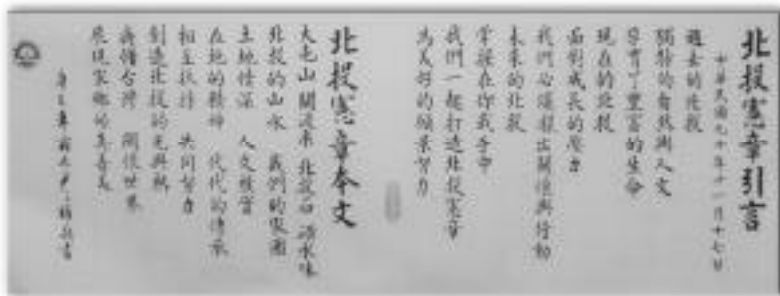 北投憲章引言
中華民國九十年十一月十七日
過去的北投
獨特的自然與人文
孕育了豐富的生命
現在的北投
面對成長的壓力
我們必須提出關懷與行動
未來的北投
掌握在你我手中
我們一起打造北投憲章
為美好的願景努力
北投憲章本文
大屯山 關渡平 北投石 磺水味
北投的山水 我們的家園
土地情深 人文豐富
在地的精神 代代的傳承
相互扶持 共同努力
創造北投的光與熱
疼惜台灣 關懷世界
展現家鄉的真善美